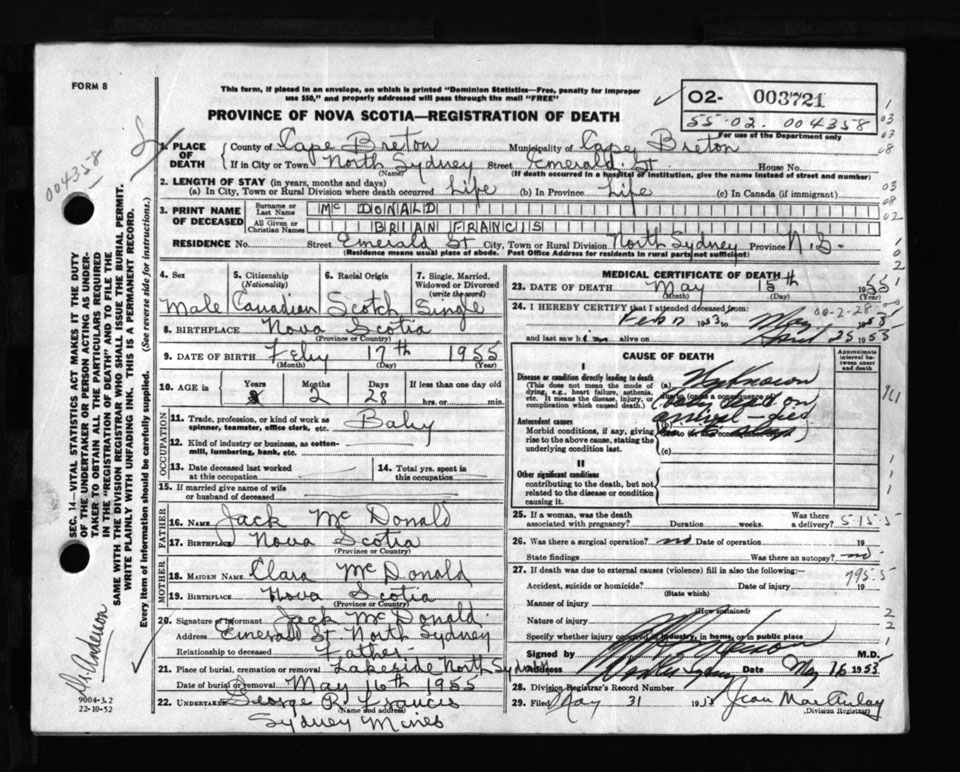 FORM 8
This form, if placed in an envelope, on which is printed "Dominion Statistics—Free, penalty for improper
use $50," and properly addressed will pass through the mail "FREE"
PROVINCE OF NOVA SCOTIA—REGISTRATION OF DEATH
02- 003721
55-02. 004358
For use of the Department only
004358
1. PLACE OF DEATH
County of Cape Breton Municipality of Cape Breton
If in City or Town North Sydney Street Emerald St House No.
(Name) (If death occurred in a hospital or institution, give the name instead of street and number)
2. LENGTH OF STAY (in years, months and days)
(a) In City, Town or Rural Division where death occurred Life (b) In Province Life (c) In Canada (if immigrant)
3. PRINT NAME OF DECEASED
Surname or Last Name Mc DONALD
All Given or Christian Names BRIAN FRANCIS
RESIDENCE No. Street Emerald St City, Town or Rural Division North Sydney Province N.S.
(Residence means usual place of abode. Post Office Address for residents in rural parts not sufficient)
4. Sex 5. Citizenship (Nationality) 6. Racial Origin 7. Single, Married, Widowed or Divorced (write the word)
Male Canadian Scotch Single
8. BIRTHPLACE Nova Scotia
(Province or Country)
9. DATE OF BIRTH Feby 17th 1955
(Month) (Day) (Year)
10. AGE in Years Months Days If less than one day old
2 28 hrs. or min.
OCCUPATION
11. Trade, profession, or kind of work as spinner, teamster, office clerk, etc. Baby
12. Kind of industry or business, as cotton-mill, lumbering, bank, etc.
13. Date deceased last worked at this occupation
14. Total yrs. spent in this occupation
15. If married give name of wife or husband of deceased
FATHER
16. NAME Jack McDonald
17. BIRTHPLACE Nova Scotia
(Province or Country)
MOTHER
18. MAIDEN NAME Clara McDonald
19. BIRTHPLACE Nova Scotia
(Province or Country)
20. Signature of informant Jack McDonald
Address Emerald St. North Sydney
Relationship to deceased Father
21. Place of burial, cremation or removal Lakeside North Sydney
Date of burial or removal May 16th 1955
22. UNDERTAKER George R.
(Name and address)
Sydney Mines
MEDICAL CERTIFICATE OF DEATH
23. DATE OF DEATH May 15th 1955
(Month) (Day) (Year)
24. I HEREBY CERTIFY that I attended deceased from:
Feb 17 1953 to May 1955
and last saw h alive on April 25 1955
CAUSE OF DEATH
Approximate interval between onset and death
I
Disease or condition directly leading to death
(This does not mean the mode of dying, e.g., heart failure, asthenia, etc. It means the disease, injury, or complication which caused death.)
(a) Unknown
due to (or as a consequence of)
(was dead on
arrival - died
Antecedent causes
Morbid conditions, if any, giving rise to the above cause, stating the underlying condition last.
(b)
due to (or as a consequence of)
(c)
II
Other significant conditions
contributing to the death, but not related to the disease or condition causing it.
25. If a woman, was the death associated with pregnancy? Duration weeks. Was there a delivery?
5-15-5
26. Was there a surgical operation? no Date of operation 19
State findings Was there an autopsy? no
27. If death was due to external causes (violence) fill in also the following:—
795.5
Accident, suicide or homicide? Date of injury 19
(State which)
Manner of injury
(How sustained)
Nature of injury
Specify whether injury occurred in industry, in home, or in public place
Signed M.D.
Address Date May 16 1955
28. Division Registrar's Record Number
29. Filed May 31 1955 Jean MacAulay
(Division Registrar)
SEC. 14—VITAL STATISTICS ACT MAKES IT THE DUTY
OF THE UNDERTAKER OR PERSON ACTING AS UNDER-
TAKER TO OBTAIN ALL THE PARTICULARS REQUIRED
IN THE "REGISTRATION OF DEATH" AND TO FILE THE
SAME WITH THE DIVISION REGISTRAR WHO SHALL ISSUE THE BURIAL PERMIT.
WRITE PLAINLY WITH UNFADING INK. THIS IS A PERMANENT RECORD.
Every item of information should be carefully supplied. (See reverse side for instructions.)
9004-3.2
22-10-52